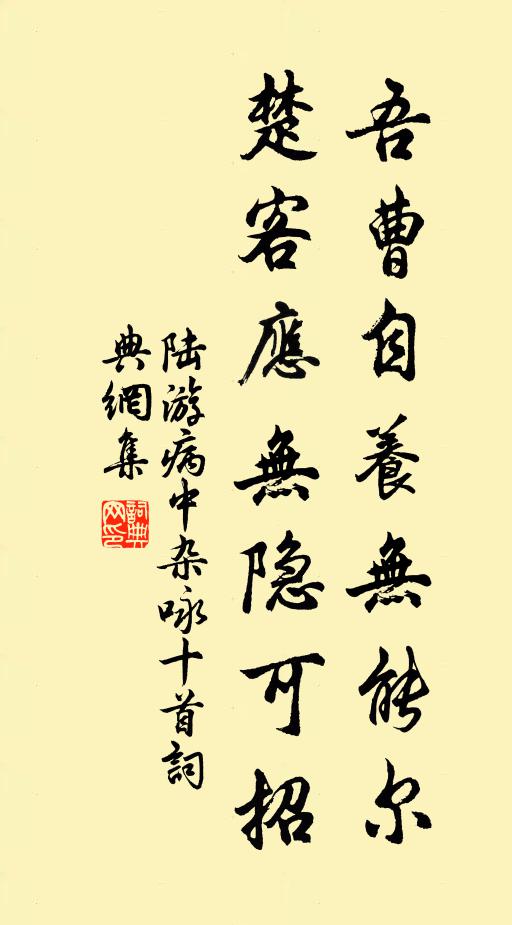 吾曹自養無能尔
楚客應無隐可招
陆游病中杂咏十首詞
典網集
詞典网印